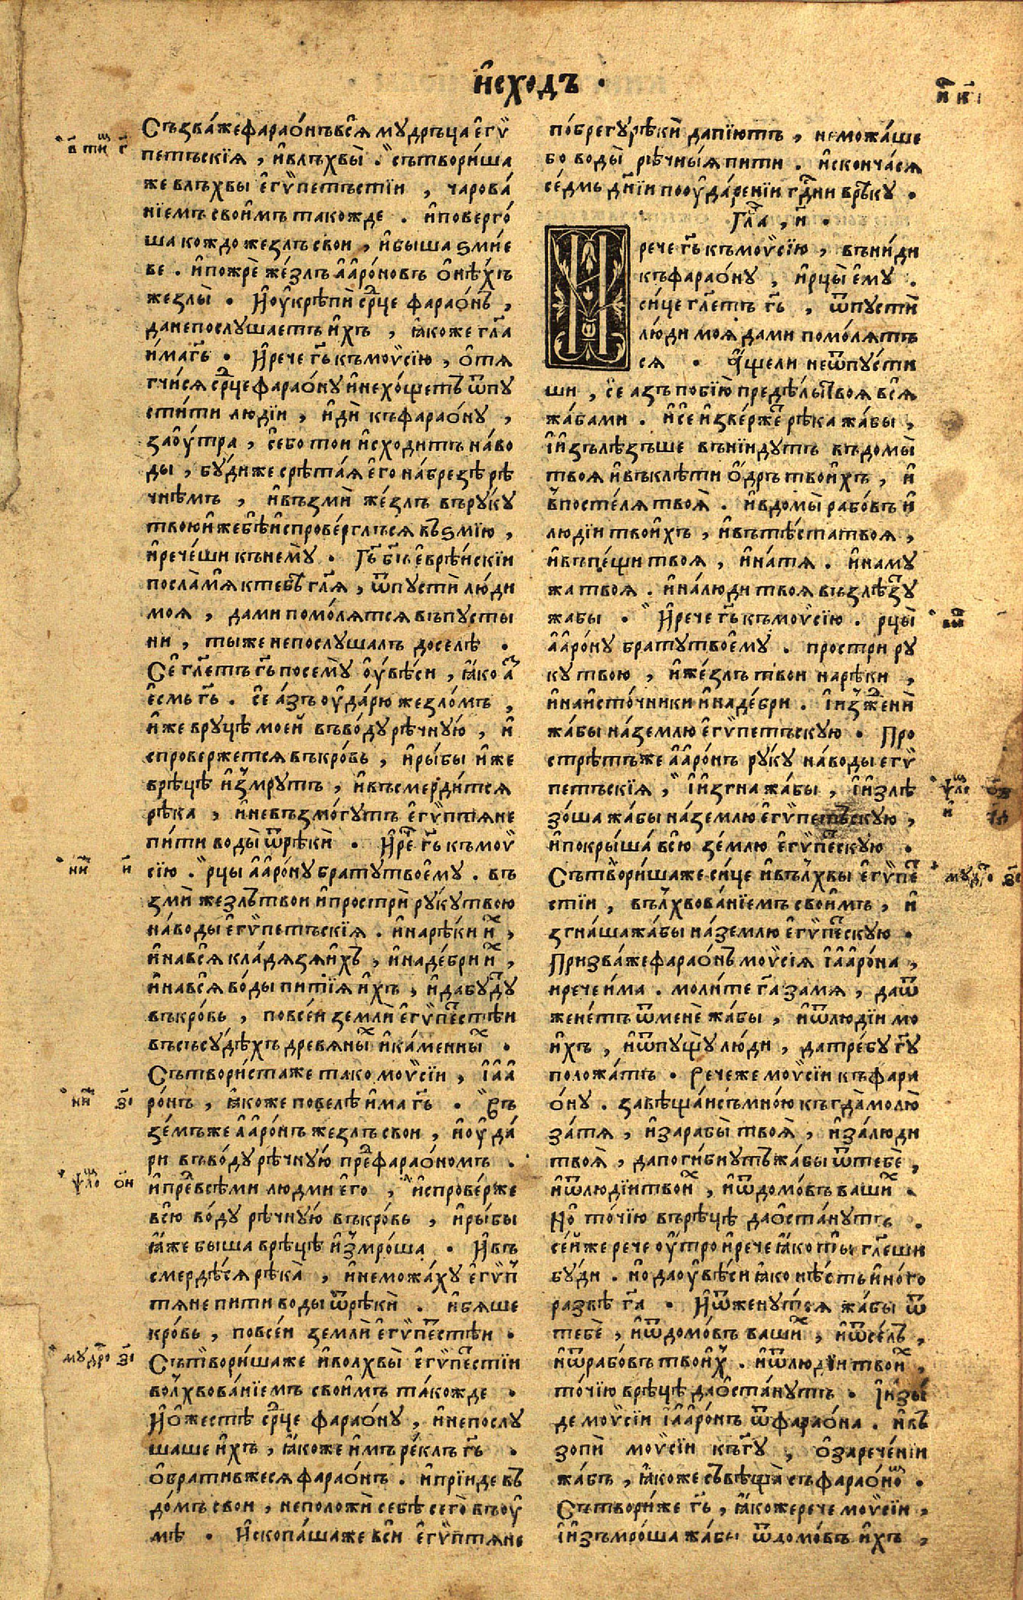 И҆схо́дъ ·
и҃ к҃і
Съзва́жефарао́нъвсѧ̀ мѹдръ́ца егѵ́
петъскїѧ , и҆влъхвы̀ . сътвори́ша
же влъхвы̀ е҆гѵ́петъстїи , чарова́
нїемъ свои҆мъ тако́жде . и҆поверго́
ша кождо жезлъ свои , и҆быша ѕмїе
ве . и҆пожрѐ же́злъ а҆аро́новъ о҆нѣ́хъ
жезлы̀ . И҆оу҆крѣпѝ ср҃це фарао́нъ ,
данепослꙋ́шаетъ и҆хъ , ꙗ҆́коже гл҃а
и҆́маг҃ь . И҆рече г҃ь къмоѵ̈сїю , ѻ҆тѧ
гчи́сѧ ср҃цефарао́нꙋ и҆нехо́щетъ ѿпꙋ
сти́ти лю́дїи , и҆дѝ къфарао́нꙋ ,
заоу́тра , се́бо тои и҆схо́дитъ на́во
ды̀ , бꙋ́диже срѣта́ѧ е҆го на́брезѣ рѣ
чнѣ́мъ , и҆възмѝ же́злъ въ́рꙋкꙋ
твою̀ и҆жебѣ и҆спрове́рглъсѧ въѕмїю ,
и҆рече́ши къне́мꙋ . Г҃ь б҃ъ е҆вре́искїи
посла́мѧ ктебѣ̀ гл҃ѧ , ѿпꙋстѝ лю́ди
моѧ , да́ми помо́лѧтсѧ въпꙋсты
ни , ты́же непослꙋ́шалъ доселѣ .
Се́ гл҃етъ г҃ь посемꙋ̀ оу҆вѣ́си , ꙗ҆́ко а҆з
е҆смь г҃ь . се́ а҆зъ оу҆да́рю жезло́мъ ,
и҆же врꙋцѣ̀ мое́й въво́дꙋрѣчнꙋ́ю , и
спрове́ржетсѧ въкро́вь , и҆ры́бы и҆же
врѣцѣ̀ и҆змрꙋ́тъ , и҆въсмерди́тсѧ
рѣка , и҆невъзмо́гꙋтъ е҆гѵ́птѧне
пи́ти воды̀ ѿрѣкѝ . И҆ре҃ г҃ь къмоѵ́
сїю . рцы̀ а҆аро́нꙋ братꙋтвое́мꙋ . въ
змѝ жезлътвои и҆прострѝ рꙋ́кꙋтвою
на́воды е҆гѵ́петъскїѧ . и҆на́рѣки и҆х ,
и҆навсѧ кла́дѧзѧи҆хъ , и҆наде́бри и҆х ,
и҆навсѧ во́ды пи́тїѧ и҆хъ , и҆дабꙋ́дꙋ
въкро́вь , повсе́и землѝ е҆гѵ́пестѣи
въсъсꙋ́дѣхъ древѧны́х и҆ка́менных .
Сътвори́стаже тако моѵ̈сїи , і҆аа
ро́нъ , ꙗ҆́коже повелѣ̀ и҆́ма г҃ь . Въ
зе́мъже а҆аро́нъ жезлъ свои , и҆оу҆да́
ри въво́дꙋ рѣчнꙋ́ю пре҆фарао́номъ .
и҆пре҆всѣ́ми людмѝ е҆го , и҆спрове́рже
всю во́дꙋ рѣчнꙋ́ю въкро́вь , и҆ры́бы
ꙗ҆́же быша врѣцѣ̀ и҆змро́ша . И҆въ
смердѣ́сѧ рѣка , и҆немо́жахꙋ е҆гѵ́п
тѧне пи́ти воды̀ ѿрѣкѝ . и҆бѧ́ше
кро́вь , повсе́и землѝ е҆гѵ́пестѣи .
Сътвори́шаже и҆волхвы̀ е҆гѵ́пестїи
волхвова́нїемъ свои҆мъ тако́жде .
И҆ѡ҆жестѣ̀ ср҃це фарао́нꙋ , и҆непослꙋ
шаше и҆хъ , ꙗ҆́коже и҆мъ ре́клъ г҃ь .
о҆брати́вжесѧ фарао́нъ . и҆прїи́де въ
домъ свои , неположѝ себѣ сего̀ въоу҆
мѣ . И҆скопа́шаже вси́ е҆гѵ́птѧне
по́брегꙋрѣкѝ дапїю́тъ , немо́жаше
бо воды̀ рѣчны́ѧ пи́ти . и҆сконча́сѧ
се́дмь дн҃їи пооу҆даре́нїи гд҃ни врѣкꙋ .
Гла҃ , и҃ .
И
рече г҃ь къмоѵ̈сїю , въни́ди
къфарао́нꙋ , и҆рцы̀ е҆мꙋ .
си́це гл҃етъ г҃ь , ѿпꙋстѝ
лю́ди моѧ̀ да́ми помо́лѧтъ
сѧ . а҆́щели неѿпꙋсти
ши , се́ а҆зъ побїю̀ предѣ́лытвоѧ всѧ̀
жа́бами . и҆се и҆зве́рже рѣка жа́бы ,
і҆и҆зълѣ́зъше въни́идꙋтъ въдо́мы̀
твоѧ̀ и҆въклѣ́ти ѻ҆дръ твои́хъ , и҆
впосте́лѧ твоѧ . и҆вдо́мы рабо́въ и
лю́дїи твои́хъ , и҆въ тѣ́ста твоѧ ,
и҆въпещи твоѧ , и҆на́тѧ . и҆на мꙋ
жа твоѧ . и҆на́люди твоѧ възлѣ́зꙋ
жа́бы . И҆рече г҃ь къмоѵ̈сїю . рцы̀
а҆аро́нꙋ братꙋтвое́мꙋ . простри рꙋ
кꙋ твою , и҆жезлъ твои на́рѣки ,
и҆наи҆сто́чники и҆наде́бри . і҆и҆зженѝ
жа́бы на́землю е҆гѵ́петъскꙋю . Про
стрѣтъже а҆аро́нъ рꙋ́кꙋ на́воды егѵ́
петъскїѧ , і҆и҆згна жа́бы , і҆и҆злѣ
зо́ша жа́бы на́землю е҆гѵ́петъскꙋю ,
и҆покры́ша всю зе́млю е҆гѵ́пескꙋю .
Сътвори́шаже си́це и҆вълхвы̀ е҆гѵ́пе
стїи , вълхвова́нїемъ свои҆мъ , и҆
згна́шажа́бы на́землю е҆гѵ́пескꙋю .
Призва́жефарао́нъ моѵ̈сїѧ і҆аро́на ,
и҆рече и҆́ма . молите г҃а за́мѧ , даѿ
жене́тъ ѿмене жа́бы , и҆ѿлю́дїи мо
и҆хъ , и҆ѿпꙋщꙋ̀ лю́ди , датре́бꙋ г҃ꙋ
положа́тъ . Рече́же моѵ̈сїи къфара
о́нꙋ . завѣща́исъмно́ю къгда̀ молю̀
за́тѧ , и҆зарабы̀ твоѧ̀ , и҆залюди
твоѧ̀ , дапоги́бнꙋтъжа́бы ѿтебѐ ,
и҆ѿлю́дїитвои́х , и҆ѿдомо́въ ваши́х .
Но́ то́чїю върѣцѣ̀ даѡ҆ста́нꙋтъ .
се́и́же рече оу҆тро и҆рече ꙗ҆́ко ты̀ гл҃еши
бꙋ́ди . но даоу҆вѣ́си ꙗ҆́ко нѣ́сть и҆но́го
ра́звѣ г҃а . И҆ѿженꙋ́тсѧ жа́бы ѿ
тебѐ , и҆ѿдомо́въ ваши́х , и҆ѿсе́лъ ,
и҆ѿрабо́въ твои́х . и҆ѿлю́дїи твои́х ,
то́чїю врѣцѣ̀ даѡ҆ста́нꙋтъ . І҆и҆зы́
де моѵ̈сїи і҆аро́нъ ѿфарао́на . и҆въ
зопѝ моѵ̈сїи къг҃ꙋ , ѡ҆зарече́нїи
жа́бъ , ꙗ҆́коже съвѣща̀ съфарао́но .
Сътвори́же г҃ь , ꙗ҆́кожерече моѵ̈сїи ,
і҆и҆зъмро́ша жа́бы ѿдомо́въ и҆хъ ,